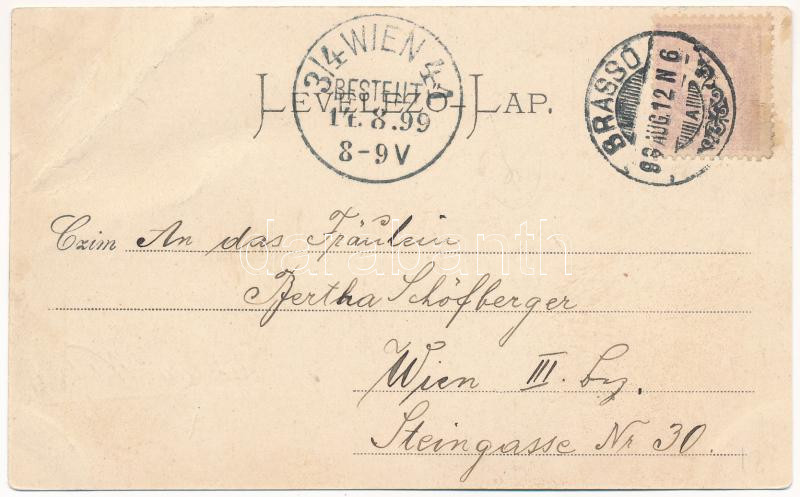 LEVELEZŐ-LAP.
3/4 WIEN 40
BESTELLT
14.8.99
8-9V
BRASSÓ
99 AUG.12 N 6
A
Czim An das Fräulein
darabanth
Bertha Schöfberger
Wien III. bz.
Steingasse Nr 30.